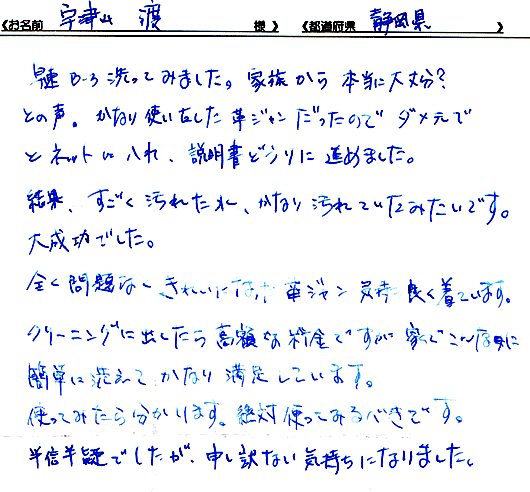 《お名前 宇津山 渡 様 》 《都道府県 静岡県 》
早速 洗ってみました。家族から 本当に大丈夫？
との声。かなり使い古した 革ジャンだったので ダメ元で
とネットに入れ、説明書どうりに 進めました。
結果、すごく汚れたれ、かなり汚れていたみたいです。
大成功でした。
全く問題なく きれいになった 革ジャン 気持 良く着ています。
クリーニングに出したら 高額な料金ですが 家でこんな風に
簡単に洗えて、かなり 満足しています。
使ってみたら分かります。絶対使ってみるべきです。
半信半疑でしたが、申し訳ない気持ちになりました。